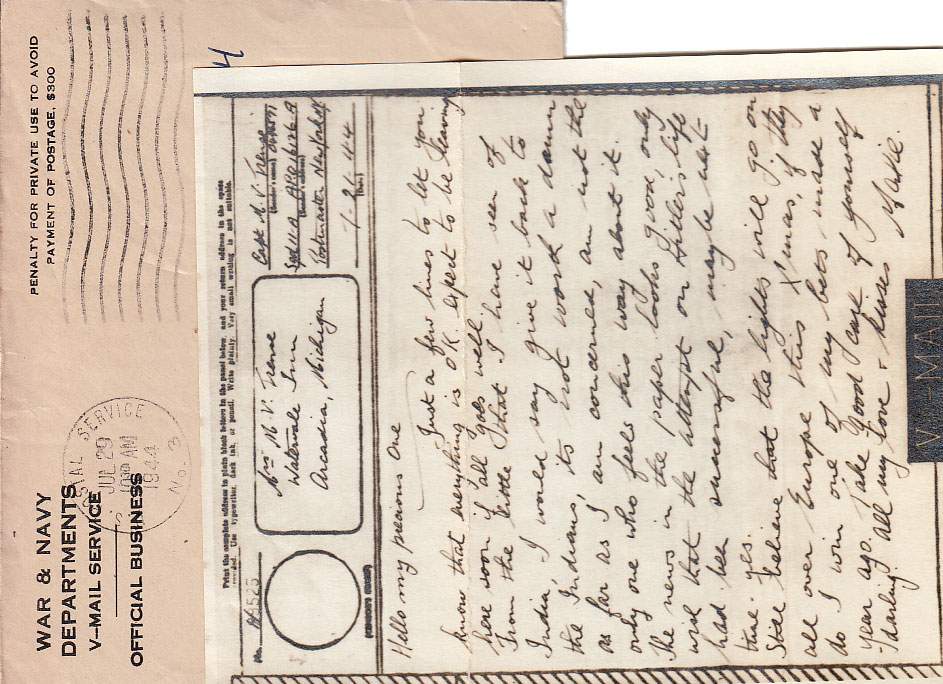 PENALTY FOR PRIVATE USE TO AVOID
PAYMENT OF POSTAGE, $300
POSTAL SERVICE
JUL 29
1000 AM
1944
No. 3
WAR & NAVY
DEPARTMENTS
V-MAIL SERVICE
OFFICIAL BUSINESS
Print the complete address in plain block letters in the panel below, and your return address in the space
provided. Use typewriter, dark ink, or pencil. Write plainly. Very small writing is not suitable.
No.
Mrs M V
Watervale Inn
Arcadia, Michigan
Capt M. V.
(Sender's name)
(Sender's address)
Postmaster New York NY
7-21-44
(Date)
(CENSOR'S STAMP)
Hello my precious one
Just a few lines to let you
know that everything is O.K. expect to be leaving
here soon if all goes well.
From the little that I have seen of
India, I would say give it back to
the Indians, its not worth a damn
as far as I am concerned, am not the
only one who feels this way about it.
The news in the paper looks good, only
wish that the attempt on Hitlers life
had been successful, maybe next
time yes.
Still believe that the lights will go on
all over Europe this Xmas, if they
do I win one of my bets made a
year ago. Take good care of yourself
darling. All my love & kisses
V-MAIL